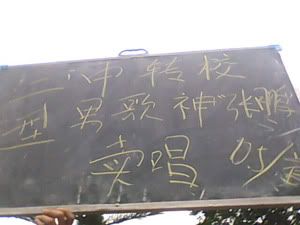 二中转校
型男歌神"张鹏
卖唱 05/